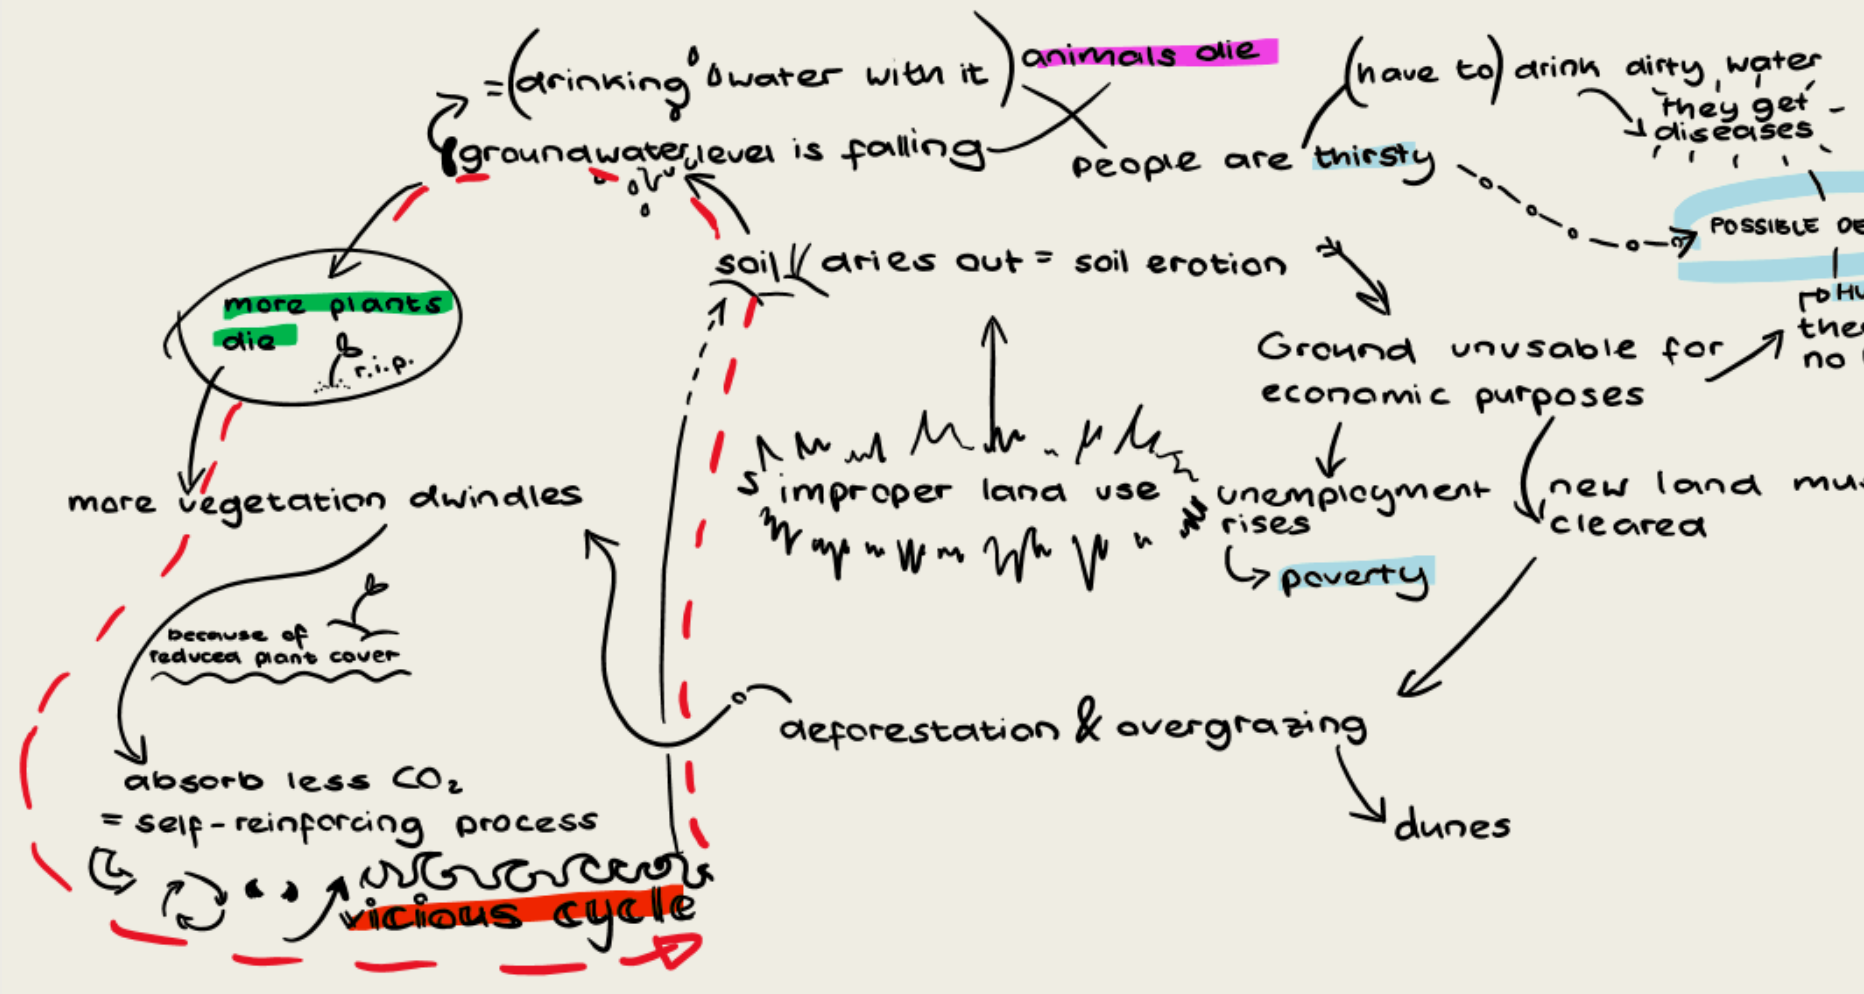 = (drinking water with it) animals die
(have to) drink dirty water
they get
diseases
groundwater level is falling
people are thirsty
POSSIBLE DE
soil dries out = soil erotion
HU
more plants
die
r.i.p.
Ground unusable for
economic purposes
the
no
more vegetation dwindles
improper land use
unemployment
rises
poverty
new land mu
cleared
because of
reduced plant cover
deforestation & overgrazing
absorb less CO₂
= self-reinforcing process
dunes
vicious cycle